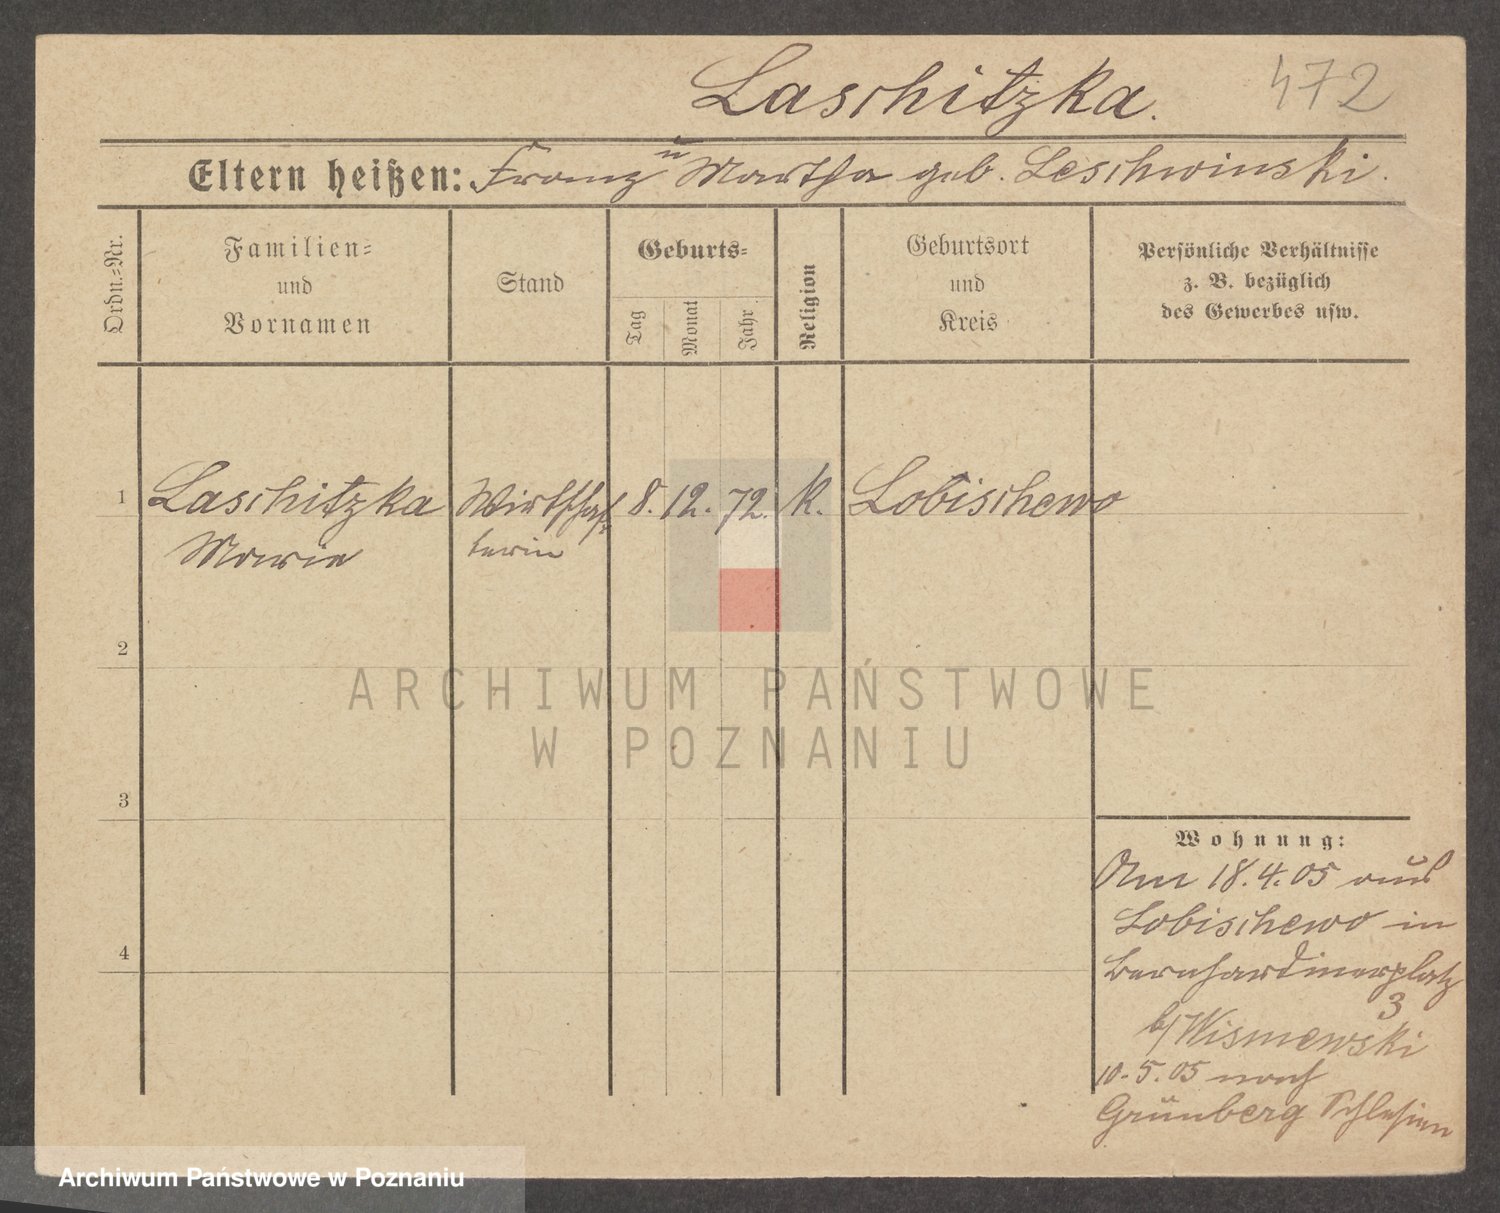 Laschitzka.
472
Eltern heißen: Franz u Martha geb. Leschwinski.
Ordn.=Nr.
Familien=
und
Vornamen
Stand
Geburts=
Tag
Monat
Jahr
Religion
Geburtsort
und
Kreis
Persönliche Verhältnisse
z. B. bezüglich
des Gewerbes usw.
1 Laschitzka Wirtschaf 8. 12. 72. K. Lobischewo
Marie terin
2
3
4
Wohnung:
Am 18.4.05 aus
Lobischewo in
Bernhardinerplatz
3
b/ Wismewski
10.5.05 nach
Grünberg Schlesien
ARCHIWUM PAŃSTWOWE
W POZNANIU
Archiwum Państwowe w Poznaniu